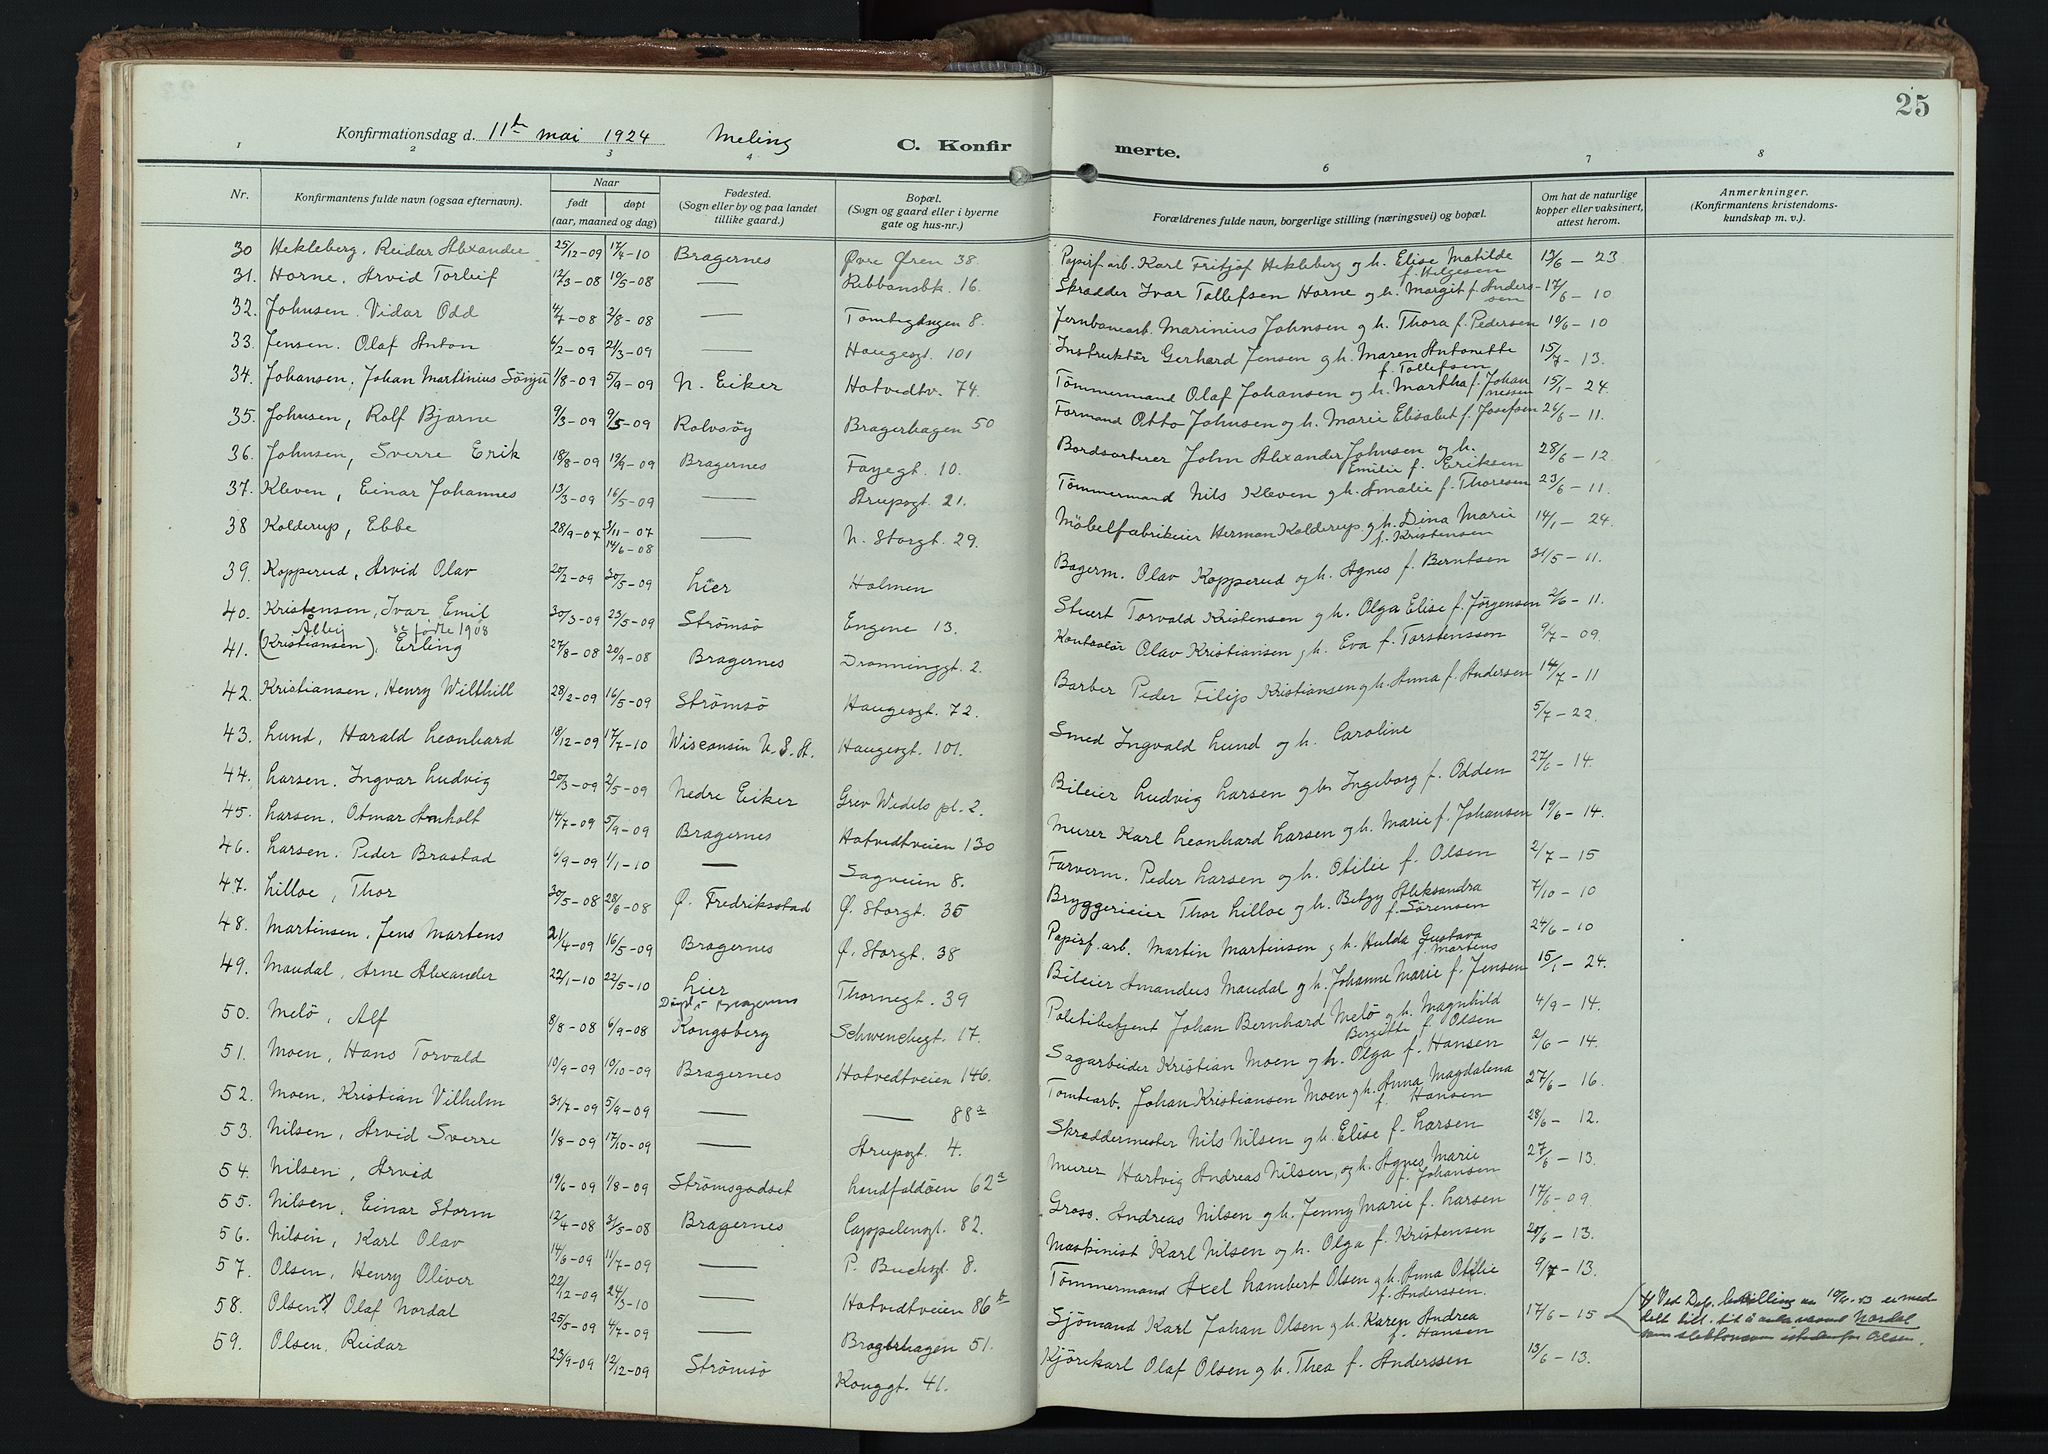 25
Konfirmationsdag d. 11te mai 1924 Meling
C. Konfirmerte.
1 2 3 4 6 7 8
Nr.
Konfirmantens fulde navn (ogsaa efternavn).
Naar
født døpt
(aar, maaned og dag)
Fødested.
(Sogn eller by og paa landet
tillike gaard.)
Bopæl.
(Sogn og gaard eller i byerne
gate og hus-nr.)
Forældrenes fulde navn, borgerlige stilling (næringsvei) og bopæl.
Om hat de naturlige
kopper eller vaksinert,
attest herom.
Anmerkninger.
(Konfirmantens kristendoms-
kundskap m. v.).
30 Hekleberg, Reidar Alexander 25/12-09 17/4-10 Bragernes Øvre Øren 38. Papirf.arb. Karl Fritjof Hekleberg og h. Elise Matilde f. Helgesen 13/6 - 23
31. Horne, Arvid Torleif 12/3-08 19/5-08 — Kibbansbk. 16. Skrædder Ivar Tollefsen Horne og h. Margit f. Anderssen 17/6 - 10
32. Johnsen. Vidar Odd 4/4-08 2/8-08 — Tomtegangen 8. Jernbanearb. Marinius Johnsen og h. Thora f. Pedersen 19/6 - 10
33. Jensen. Olaf Anton 6/2-09 21/3-09 — Haugesgt. 101 Instruktør Gerhard Jensen og h. Maren Antonette f. Tollefsen 15/7 - 13.
34. Johansen, Johan Martinius Sönju 1/8-09 5/9-09 N. Eiker Hotvedtv. 74. Tömmermand Olaf Johansen og h. Martha f. Johannessen 15/1 - 24
35. Johnsen, Rolf Bjarne 9/3-09 9/5-09 Rolvsöy Bragerhagen 50 Formand Otto Johnsen og h. Marie Elisabet f. Josefsen 26/6 - 11.
36. Johnsen, Sverre Erik 18/8-09 19/9-09 Bragernes Fayegt. 10. Bordsorterer John Alexander Johnsen og h. Emilie f. Eriksen 28/6 - 12.
37. Kleven, Einar Johannes 13/3-09 16/5-09 — Arupsgt. 21. Tömmermand Nils Kleven og h. Amalie f. Thoresen 23/6 - 11.
38 Kolderup, Ebbe 28/9-07 3/11-07 14/6-08 — N. Storgt. 29. Möbelfabrikeier Herman Kolderup og h. Dina Marie f. Kristensen 14/1 - 24.
39. Kopperud, Arvid Olav 20/2-09 30/5-09 Lier Holmen Bagerm. Olav Kopperud og h. Agnes f. Berntsen 31/5 - 11.
40. Kristensen, Ivar Emil 30/3-09 23/5-09 Strømsø Engene 13. Stuert Torvald Kristensen og h. Olga Elise f. Jørgensen 2/6 - 11.
41. (Kristiansen), Erling se fødte 1908 27/8-08 20/9-08 Bragernes Dronninggt. 2. Kontrolör Olav Kristiansen og h. Eva f. Torstenssen 9/7 - 09.
42. Kristiansen, Henry Wilthill 28/2-09 16/5-09 Strømsø Haugesgt. 72. Barber Peder Filip Kristiansen og h. Anna f. Andersen 14/7 - 11
43. Lund, Harald Leonhard 18/12-09 17/7-10 Wisconsin U. S. A. Haugesgt. 101. Smed Ingvald Lund og h. Caroline 5/7 - 22.
44. Larsen, Ingvar Ludvig 20/3-09 2/5-09 Nedre Eiker Grev Wedels pl. 2. Bileier Ludvig Larsen og h. Ingeborg f. Odden 27/6 - 14.
45. Larsen, Otmar Anholt 14/7-09 5/9-09 Bragernes Hotvedtveien 130 Murer Karl Leonhard Larsen og h. Marie f. Johansen 19/6 - 14.
46. Larsen. Peder Brastad 6/9-09 1/1-10 — Sagveien 8. Farverm. Peder Larsen og h. Otilie f. Olsen 2/7 - 15
47. Lilloe, Thor 30/5-08 28/6-08 Ø. Fredriksstad Ø. Storgt. 35 Bryggerieier Thor Lilloe og h. Betzy Aleksandra f. Sörensen 7/10 - 10
48. Martinsen, Jens Martens 21/4-09 16/5-09 Bragernes Ø. Storgt. 38 Papirf.arb. Martin Martinsen og h. Hulda Gustava f. Martens 24/6 - 10
49. Maudal, Arne Alexander 22/1-10 22/5-10 Lier Døpt i Bragernes Thornegt. 39 Bileier Amandus Maudal og h. Johanne Marie f. Jensen 15/1 - 24.
50. Melö, Alf 8/8-08 6/9-08 Kongsberg Schwenckegt. 17. Politibetjent Johan Bernhard Melö og h. Magnhild Bergitte f. Olsen 4/9 - 14.
51. Moen, Hans Torvald 10/9-09 19/10-09 Bragernes Hotvedtveien 146. Sagarbeider Kristian Moen og h. Olga f. Hansen 2/6 - 14.
52. Moen, Kristian Vilhelm 31/7-09 5/9-09 — — 88a Tomtearb. Johan Kristiansen Moen og h. Anna Magdalena f. Hansen 27/6 - 16.
53. Nilsen, Arvid Sverre 1/8-09 17/10-09 — Arupsgt. 4. Skræddermester Nils Nilsen og h. Elise f. Larsen 28/6 - 12.
54. Nilsen, Arvid 19/6-09 1/8-09 Strömsgodset Landfaldöen 62a Murer Hartvig Andreas Nilsen, og h. Agnes Marie f. Johansen 27/6 - 13.
55. Nilsen, Einar Storm 12/4-08 31/5-08 Bragernes Cappelensgt. 82. Gross. Andreas Nilsen og h. Jenny Marie f. Larsen 17/6 - 09
56. Nilsen, Karl Olav 14/6-09 11/7-09 — P. Buchsgt. 8. Maskinist Karl Nilsen og h. Olga f. Kristensen 20/6 - 13.
57. Olsen, Henry Oliver 22/12-09 24/3-10 — Hotvedtveien 86b Tömmermand Axel Lambert Olsen og h. Anna Otilie f. Anderssen. 9/7 - 13.
58. Olsen x) Olaf Nordal 25/5-09 4/7-09 — Bragerhagen 51. Sjömand Karl Johan Olsen og h. Karen Andrea f. Hansen 17/6 - 15
x) Ved Dep. bevilling av 19/6-43 er med
delt till. til å anta navnet Nordal
som slektsnavn istedenfor Olsen.
59. Olsen, Reidar 23/9-09 12/12-09 Strömsö Konggt. 41. Kjörekarl Olaf Olsen og h. Thea f. Anderssen 13/6 - 13.